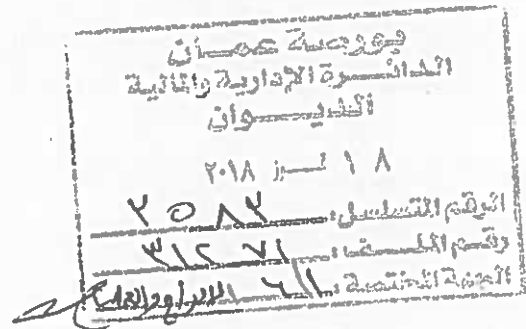 بورصة عمان
الدائرة الإدارية والمالية
الديوان
١٨ تموز ٢٠١٨
الرقم المتسلسل:
رقم الملف: ٣١٢٧١
الجهة المختصة: